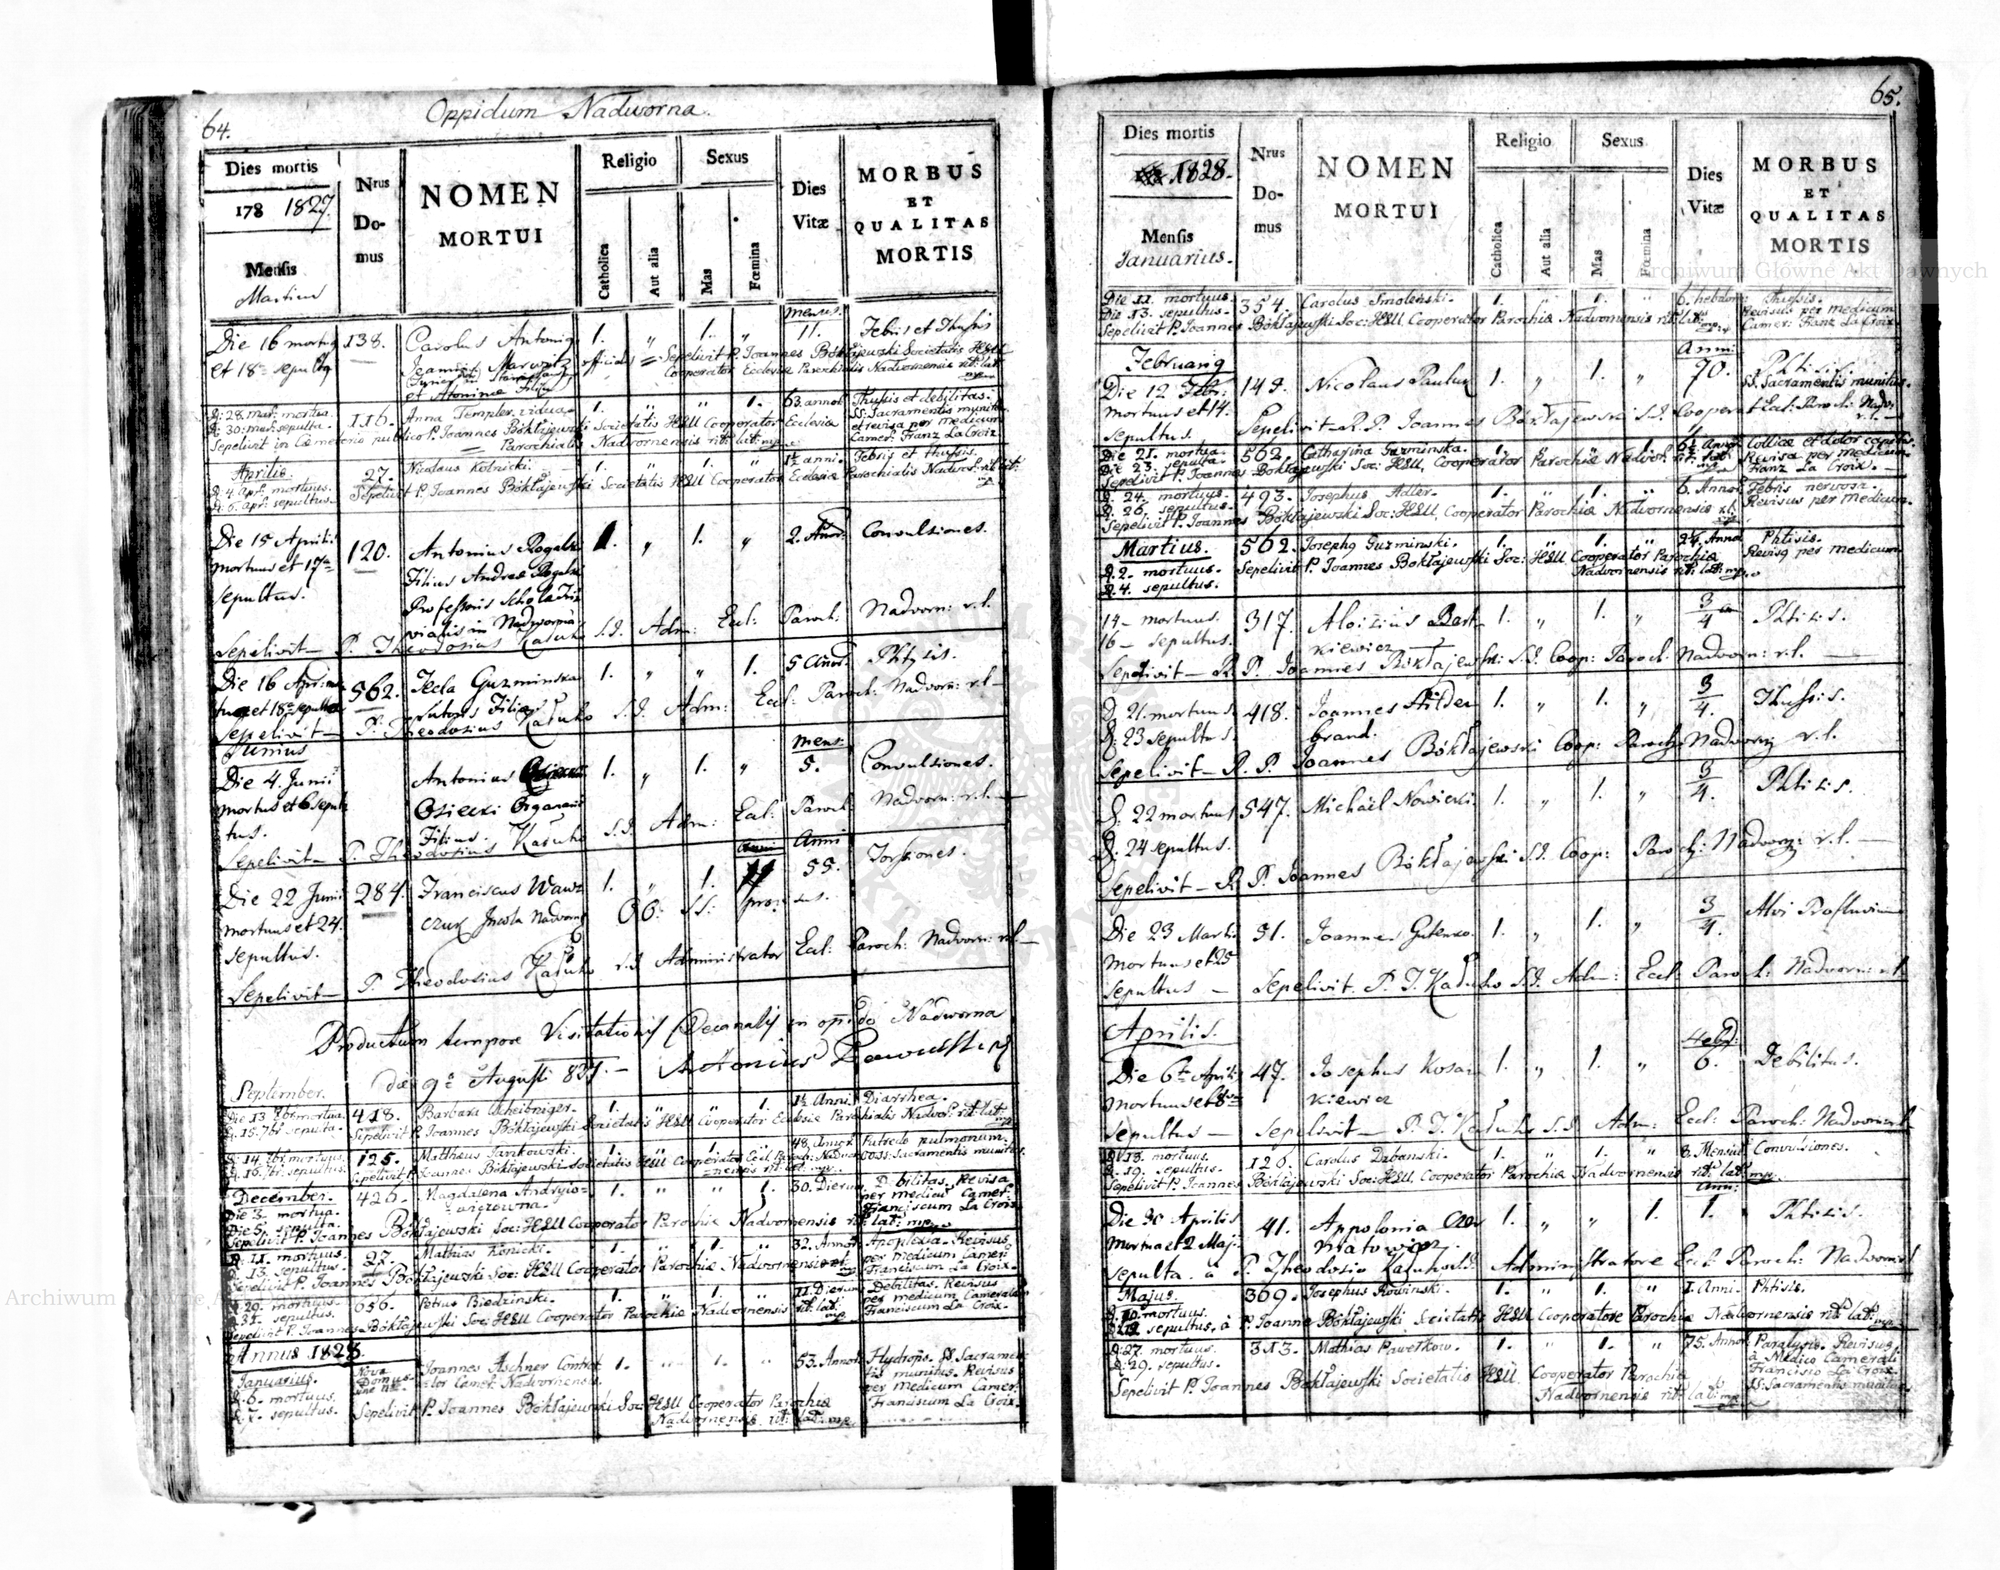 64.
Oppidum Nadworna.
Dies mortis
178 1827.
Mensis
Martius
Nrus Domus
NOMEN
MORTUI
Religio
Catholica
Aut alia
Sexus
Mas
Fœmina
Dies
Vitæ
MORBUS
ET
QUALITAS
MORTIS
Die 16 138. Carolus Antonius 1. „ 1. „ mens. 11. Febris et Thussis
Sepelivit P. Joannes Bókłajewski Societatis JESU
Cooperator Ecclesiæ Parochialis Nadvornensis rit. lat.
D. 28. mar. mortua. 116. Anna Templer vidua. 1. „ „ 1. 63. annor. Thussis et debilitas.
D. 30. mar. sepulta. SS. Sacramentis munita
Sepelivit in Cœmeterio publico P. Joannes Bókłajewski Societatis JESU Cooperator Ecclesiæ
Parochialis Nadvornensis rit. lat. mp.
et revisa per medicum
Camer. Franz La Croix.
Aprilis. 27. Nicolaus Kotnicki. 1. „ 1. „ 1½ anni. Febris et thussis.
D. 4. apr. mortuus. Sepelivit P. Joannes Bókłajewski Societatis JESU Cooperator Ecclesiæ Parochialis Nadvor. rit. lat.
D. 6. apr. sepultus.
Die 15 Aprilis 120. Antonius Rogalski 1. „ 1. „ 2. Anor. Convulsiones.
mortuus et 17
sepultus.
Filius Andreæ Rogalski
Professoris Scholæ Trivialis in Nadworna
Sepelivit P. Theodosius Kałucho S.J. Adm: Eccl: Paroch: Nadvorn: r.l.
Die 16 Apr: 562. Tecla Guzminska 1. „ „ 1. 5 Anor. Phtysis.
Sutoris Filia
Sepelivit P. Theodosius Kałucho S.J. Adm: Eccl: Paroch: Nadvorn: r.l.
Junius
Die 4 Junii Antonius 1. „ 1. „ mens. 5. Convulsiones.
mortus et 6 sepultus.
Osiecki Organarii
Filius.
Sepelivit P. Theodosius Kałucho S.J. Adm: Eccl: Paroch: Nadvorn: r.l.
Die 22 Junii 284. Franciscus Wawrzczur Incola Nadvorn 1. „ 1. Anni 55. Torsiones.
mortuus et 24. OO: SS: provisus.
sepultus.
Sepelivit P. Theodosius Kałucho S.J. Administrator Eccl: Paroch: Nadvorn: r.l.
Productum tempore Visitationis Decanalis in oppido Nadworna
die 9a Augusti 827. Antonius
September.
Die 13 7br. mortua. 418. Barbara Scheibniger. 1. „ „ 1. 1½ Anni. Diarrhea.
D. 15. 7br. sepulta. Sepelivit P. Joannes Bókłajewski Societatis JESU Cooperator Ecclesiæ Parochialis Nadvor. rit. lat.
D. 14. 7br. mortuus. 125. Mattheus Jankowski. 1. „ 1. „ 48. Annor. Putredo pulmonum.
D. 16. 7br. sepultus. Sepelivit P. Joannes Bókłajewski Societatis JESU Cooperator Eccl. Paroch. Nadvornensis rit. lat. mp. SS. Sacramentis munitus.
December. 426. Magdalena 1. „ „ 1. 30. Dierum Debilitas. Revisa
Die 3. mortua. per medicum Camer.
Die 5. sepulta. Franciscum La Croix.
Sepelivit P. Joannes Bókłajewski Soc: JESU Cooperator Parochiæ Nadvornensis rit. lat. mp.
D. 11. mortuus. 27. Mathias Konicki. 1. „ 1. „ 32. Annor. Apoplexia. Revisus
D. 13. sepultus. per medicum Camer.
Sepelivit P. Joannes Bókłajewski Soc: JESU Cooperator Parochiæ Nadvornensis Franciscum La Croix.
D. 29. mortuus. 656. Petrus Biedzinski. 1. „ 1. „ 11. Dierum Debilitas. Revisus
D. 31. sepultus. per medicum Cameralem
Sepelivit P. Joannes Bókłajewski Soc: JESU Cooperator Parochiæ Nadvornensis rit. lat. Franciscum La Croix.
Annus 1828.
Januarius. Nova Domus sine nro. Joannes Aschner 1. „ 1. „ 53. Annor. Hydrops. SS. Sacramentis munitus. Revisus
D. 6. mortuus. Camer. Nadvornensis. per medicum Camer.
D. 7. sepultus. Sepelivit P. Joannes Bókłajewski Soc: JESU Cooperator Parochiæ Franciscum La Croix.
Nadvornensis rit. lat. mp.
65.
Dies mortis
1828.
Mensis
Januarius.
Nrus Domus
NOMEN
MORTUI
Religio
Catholica
Aut alia
Sexus
Mas
Fœmina
Dies
Vitæ
MORBUS
ET
QUALITAS
MORTIS
Die 11. mortuus. 354. Carolus Smolenski. 1. „ 1. „ 6. hebdom: Thussis.
Die 13. sepultus. Revisus per medicum
Sepelivit P. Joannes Bókłajewski Soc: JESU Cooperator Parochiæ Nadvornensis rit. lat. Camer: Franz La Croix.
Februarius
Die 12 Febr: 149. Nicolaus Pauluk 1. „ 1. „ Anni 70. Phtisis.
mortuus et 14. SS. Sacramentis munitus.
sepultus. Sepelivit R.P. Joannes Bókłajewski S.J. Cooperat Eccl: Paroch: Nadv. r.l.
Die 21. mortua. 562. Catharina Guzminska. 1. „ „ 1. Annor. Collica et dolor capitis.
Die 23. sepulta. Revisa per medicum
Sepelivit P. Joannes Bókłajewski Soc: JESU, Cooperator Parochiæ Nadvor. rit. lat. Franz La Croix.
D. 24. mortuus. 493. Josephus Adler. 1. „ 1. „ 6. Annor. Febris nervosa.
D. 26. sepultus. Revisus per medicum.
Sepelivit P. Joannes Bókłajewski Soc: JESU, Cooperator Parochiæ Nadvornensis r.l.
Martius. 562. Josephus Guzminski. 1. „ 1. „ Annor. Phtisis.
D. 2. mortuus. Sepelivit P. Joannes Bókłajewski Soc: JESU Cooperator Parochiæ Revisus per medicum
D. 4. sepultus. Nadvornensis rit. lat. mp.
14 mortuus. 317. Aloizius Bartkiewicz 1. „ 1. „ 3/4 Phtisis.
16 sepultus.
Sepelivit R. P. Joannes Bókłajewski S.J. Coop: Paroch: Nadvorn: r.l.
D. 21. mortuus 418. Joannes Hildenbrand. 1. „ 1. „ 3/4. Thussis.
D. 23 sepultus.
Sepelivit R. P. Joannes Bókłajewski Coop: Paroch: Nadvorn r.l.
D. 22 mortuus 547. Michaël Nowicki 1. „ 1. „ 3/4. Phtisis.
D. 24 sepultus.
Sepelivit R. P. Joannes Bókłajewski S.J. Coop: Paroch: Nadvorn: r.l.
Die 23 Martii 51. Joannes Gutenko. 1. „ 1. „ 3/4. Alvi Profluvium
mortuus et 25
sepultus Sepelivit P. T. Kałucho S.J. Adm: Eccl: Paroch: Nadvorn: r.l.
Aprilis.
Die 6ta Aprilis 47. Josephus Kosarkiewicz 1. „ 1. „ Hebd: 6. Debilitas.
mortuus et 8va
sepultus Sepelivit P. T. Kałucho S.J. Adm: Eccl: Paroch: Nadvorn r.l.
D. 13. mortuus. 126. Carolus Dzbanski. 1. „ 1. „ 8. Mensium Convulsiones.
D. 19. sepultus.
Sepelivit P. Joannes Bókłajewski Soc: JESU Cooperator Parochiæ Nadvornensis rit. lat. mp.
Die 30 Aprilis 41. Appolonia 1. „ „ 1. Ann: 1. Phtisis.
mortua et 2 Maji
sepulta. à P. Theodosio Kałucho S.J. Administratore Eccl: Paroch: Nadvorn r.l.
Majus. 369. Josephus Rowinski. 1. „ 1. „ 1. Anni. Phtisis.
D. 10. mortuus.
D. 12. sepultus, à P. Joanne Bókłajewski Societatis JESU Cooperatore Parochiæ Nadvornensis rit. lat. mp.
D. 27. mortuus. 313. Mathias Pawełkow. 1. „ 1. „ 75. Annor. Paralysis. Revisus
D. 29. sepultus. à Medico Camerali
Sepelivit P. Joannes Bókłajewski Societatis JESU Cooperator Parochiæ Francisco La Croix.
Nadvornensis rit. lat. mp. SS: Sacramentis munitus
Archiwum Główne Akt Dawnych
Archiwum Główne A